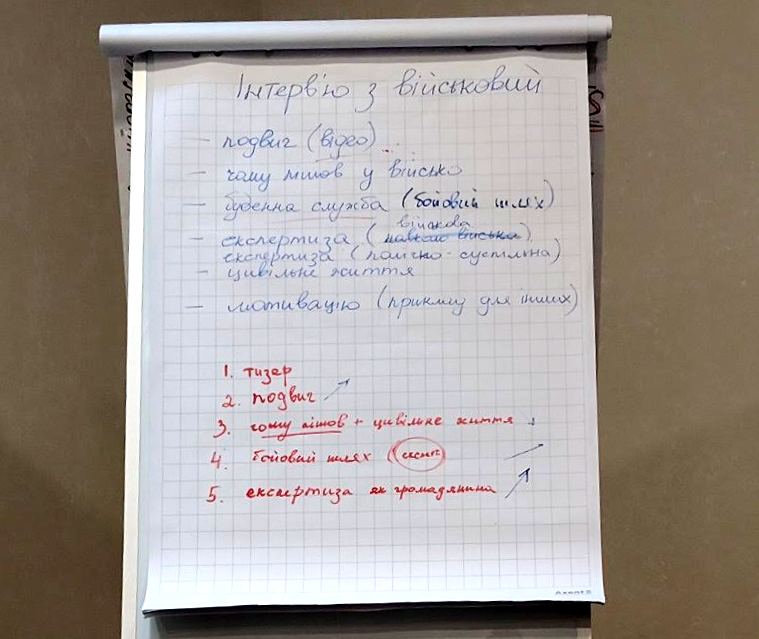 Інтерв'ю з військовий
— подвиг (відео)
— чому пішов у військо
— буденна служба (бойовий шлях)
військова
— експертиза (навколо війська)
експертиза (політико-суспільна)
— цивільне життя
— мотивацію (приклад для інших)
1. тизер
2. подвиг
3. чому пішов + цивільне життя
4. бойовий шлях
5. експертиза як громадянина
Axent